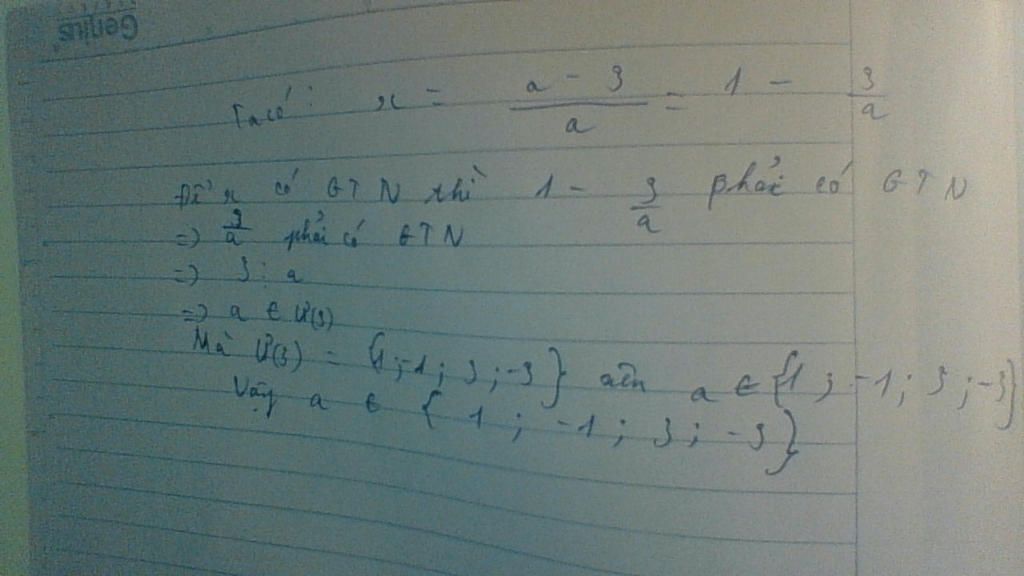 Genius
Ta có: x = a - 3 / a = 1 - 3 / a
Để x có GTN thì 1 - 3/a phải có GTN
=> 3/a phải có GTN
=> 3 ⋮ a
=> a ∈ Ư(3)
Mà Ư(3) = {1; -1; 3; -3} nên a ∈ {1; -1; 3; -3}
Vậy a ∈ {1; -1; 3; -3}